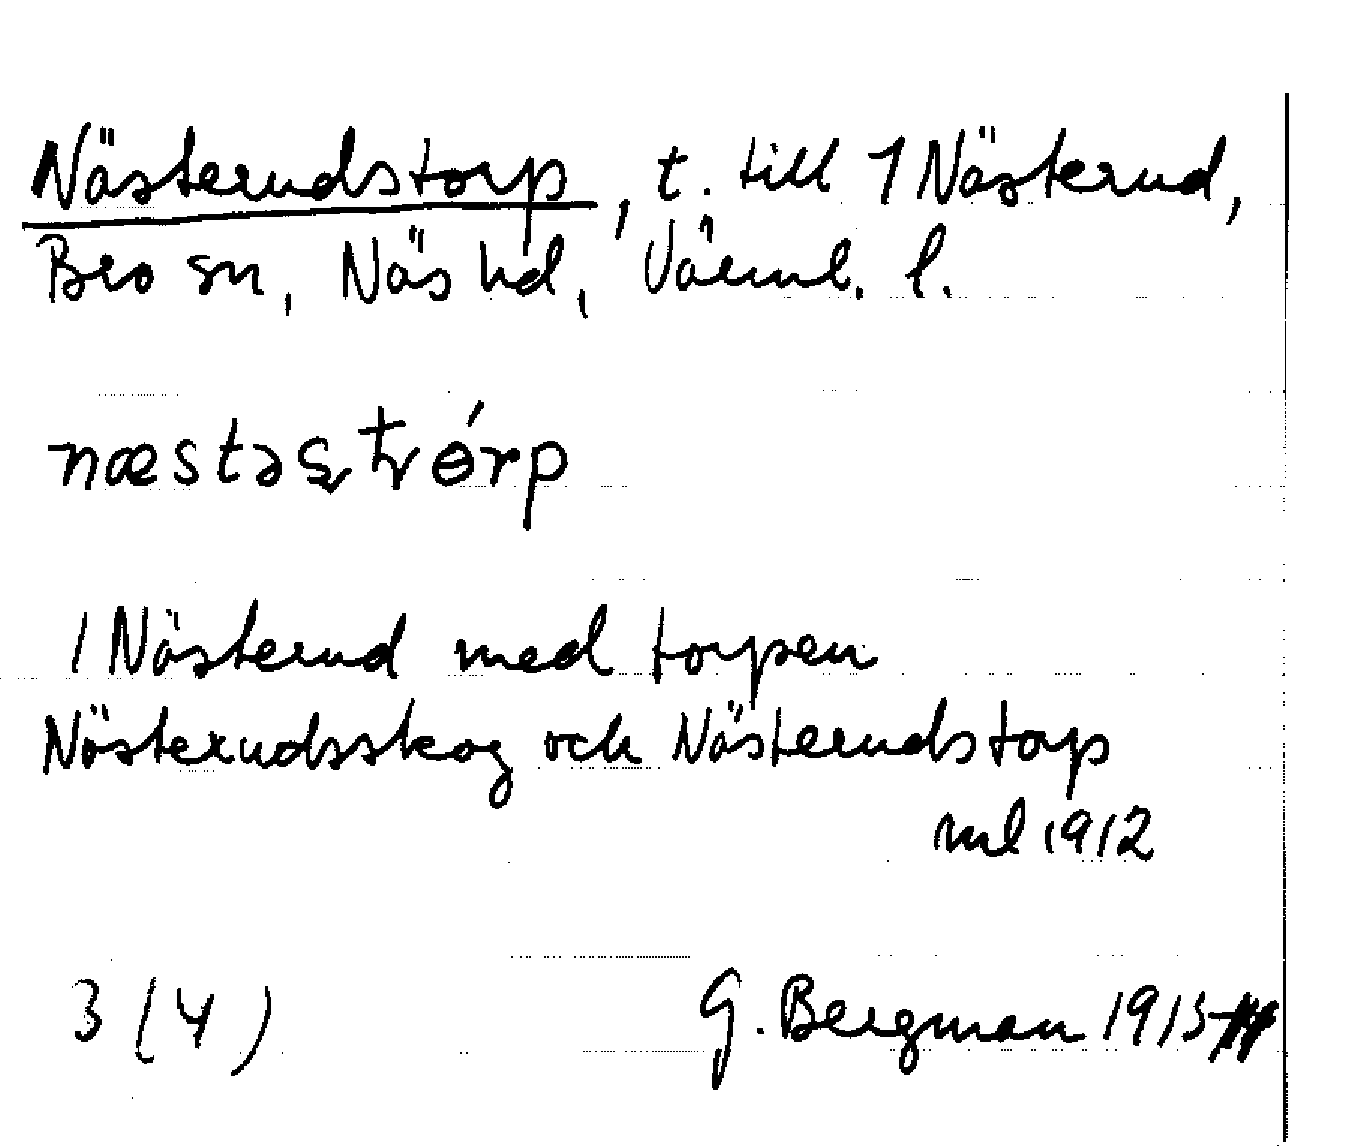 Nästerudstorp, t. till 1 Nästerud,
Bro sn, Näs hd, Värml. l.
næstəʂʈɵ́rp
1 Nästerud med torpen
Nästerudsskog och Nästerudstorp
ml 1912
3 (4)
G. Bergman 1915